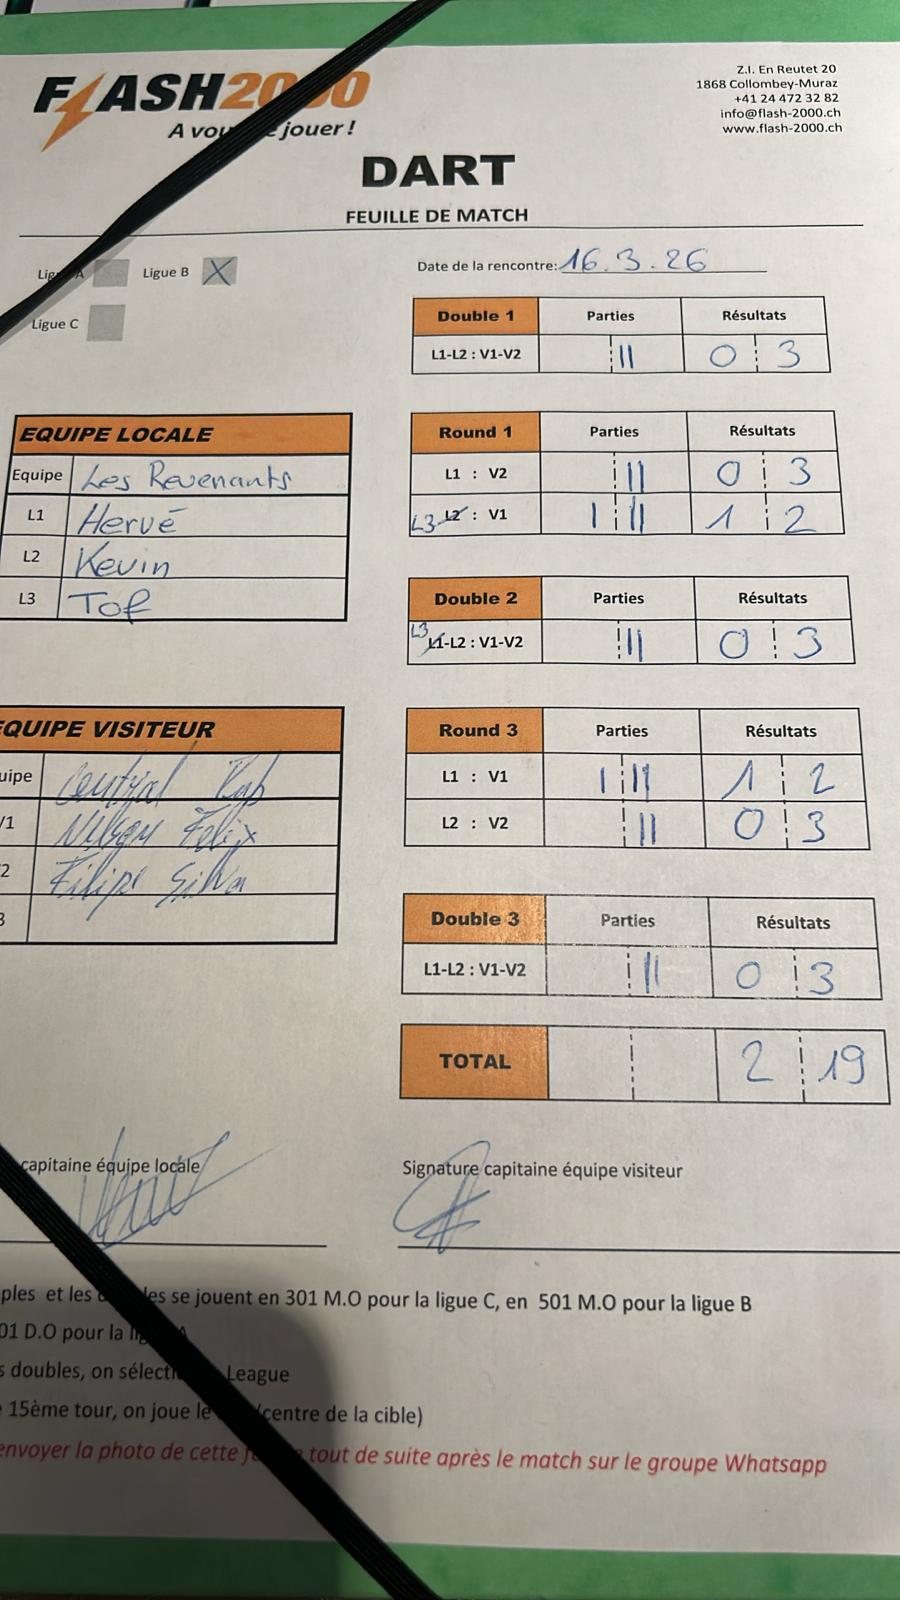 FLASH2000
A vou e jouer !
Z.I. En Reutet 20
1868 Collombey-Muraz
+41 24 472 32 82
info@flash-2000.ch
www.flash-2000.ch
DART
FEUILLE DE MATCH
Lig A
Ligue B X
Ligue C
Date de la rencontre: 16.3.26
Double 1 Parties Résultats
L1-L2 : V1-V2 || 0 3
EQUIPE LOCALE
Equipe Les Revenants
L1 Hervé
L2 Kevin
L3 Tof
Round 1 Parties Résultats
L1 : V2 || 0 3
L3 L2 : V1 | || 1 2
Double 2 Parties Résultats
L3 L1-L2 : V1-V2 || 0 3
EQUIPE VISITEUR
uipe Central
/1 Nilson Felix
2 Filipe Silva
3
Round 3 Parties Résultats
L1 : V1 | || 1 2
L2 : V2 || 0 3
Double 3 Parties Résultats
L1-L2 : V1-V2 || 0 3
TOTAL 2 19
capitaine équipe locale
Signature capitaine équipe visiteur
ples et les les se jouent en 301 M.O pour la ligue C, en 501 M.O pour la ligue B
01 D.O pour la lig A
s doubles, on sélecti League
15ème tour, on joue le centre de la cible)
envoyer la photo de cette f tout de suite après le match sur le groupe Whatsapp